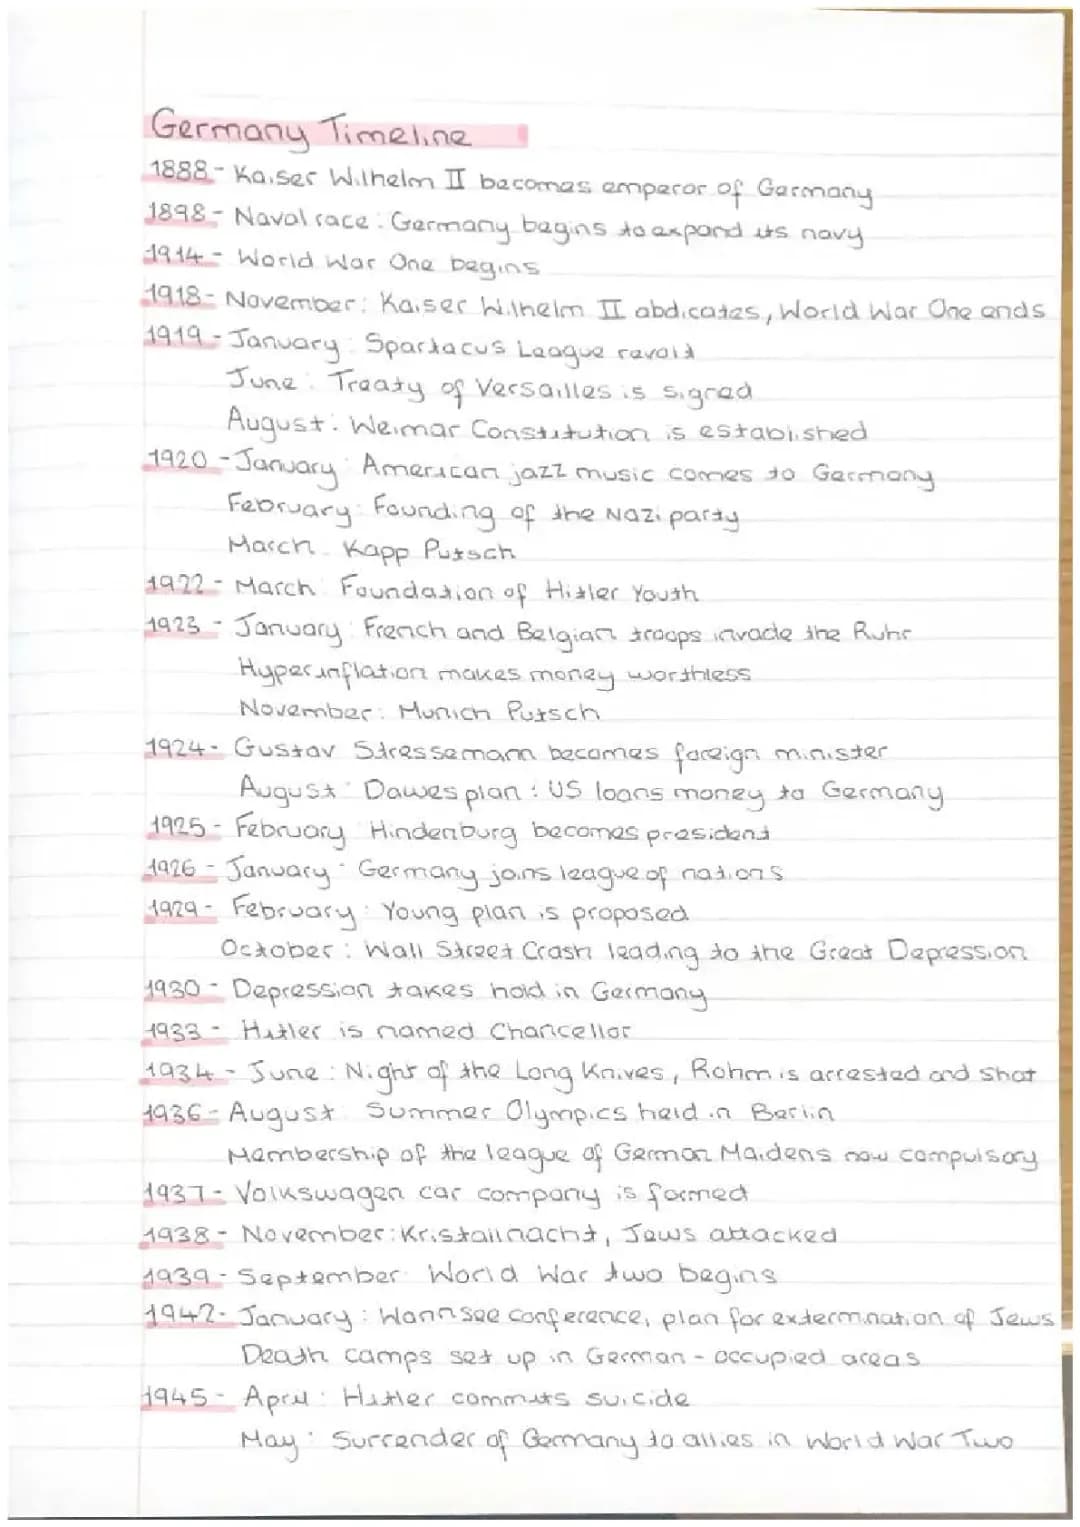 Germany Timeline
1888 - Kaiser Wilhelm II becomes emperor of Germany
1898 - Naval race: Germany begins to expand its navy
1914 - World War One begins
1918 - November: Kaiser Wilhelm II abdicates, World War One ends
1919 - January: Spartacus League revolt
June: Treaty of Versailles is signed
August: Weimar Constitution is established
1920 - January: American jazz music comes to Germany
February: Founding of the Nazi party
March: Kapp Putsch
1922 - March: Foundation of Hitler Youth
1923 - January: French and Belgian troops invade the Ruhr
Hyperinflation makes money worthless
November: Munich Putsch
1924 - Gustav Stressemann becomes foreign minister
August: Dawes plan: US loans money to Germany
1925 - February: Hindenburg becomes president
1926 - January: Germany joins league of nations
1929 - February: Young plan is proposed
October: Wall Street Crash leading to the Great Depression
1930 - Depression takes hold in Germany
1933 - Hitler is named Chancellor
1934 - June: Night of the Long Knives, Rohm is arrested and shot
1936 - August: Summer Olympics held in Berlin
Membership of the league of German Maidens now compulsory
1937 - Volkswagen car company is formed
1938 - November: Kristallnacht, Jews attacked
1939 - September: World War two begins
1942 - January: Wannsee conference, plan for extermination of Jews
Death camps set up in German-occupied areas
1945 - April: Hitler commits suicide
May: Surrender of Germany to allies in World War Two